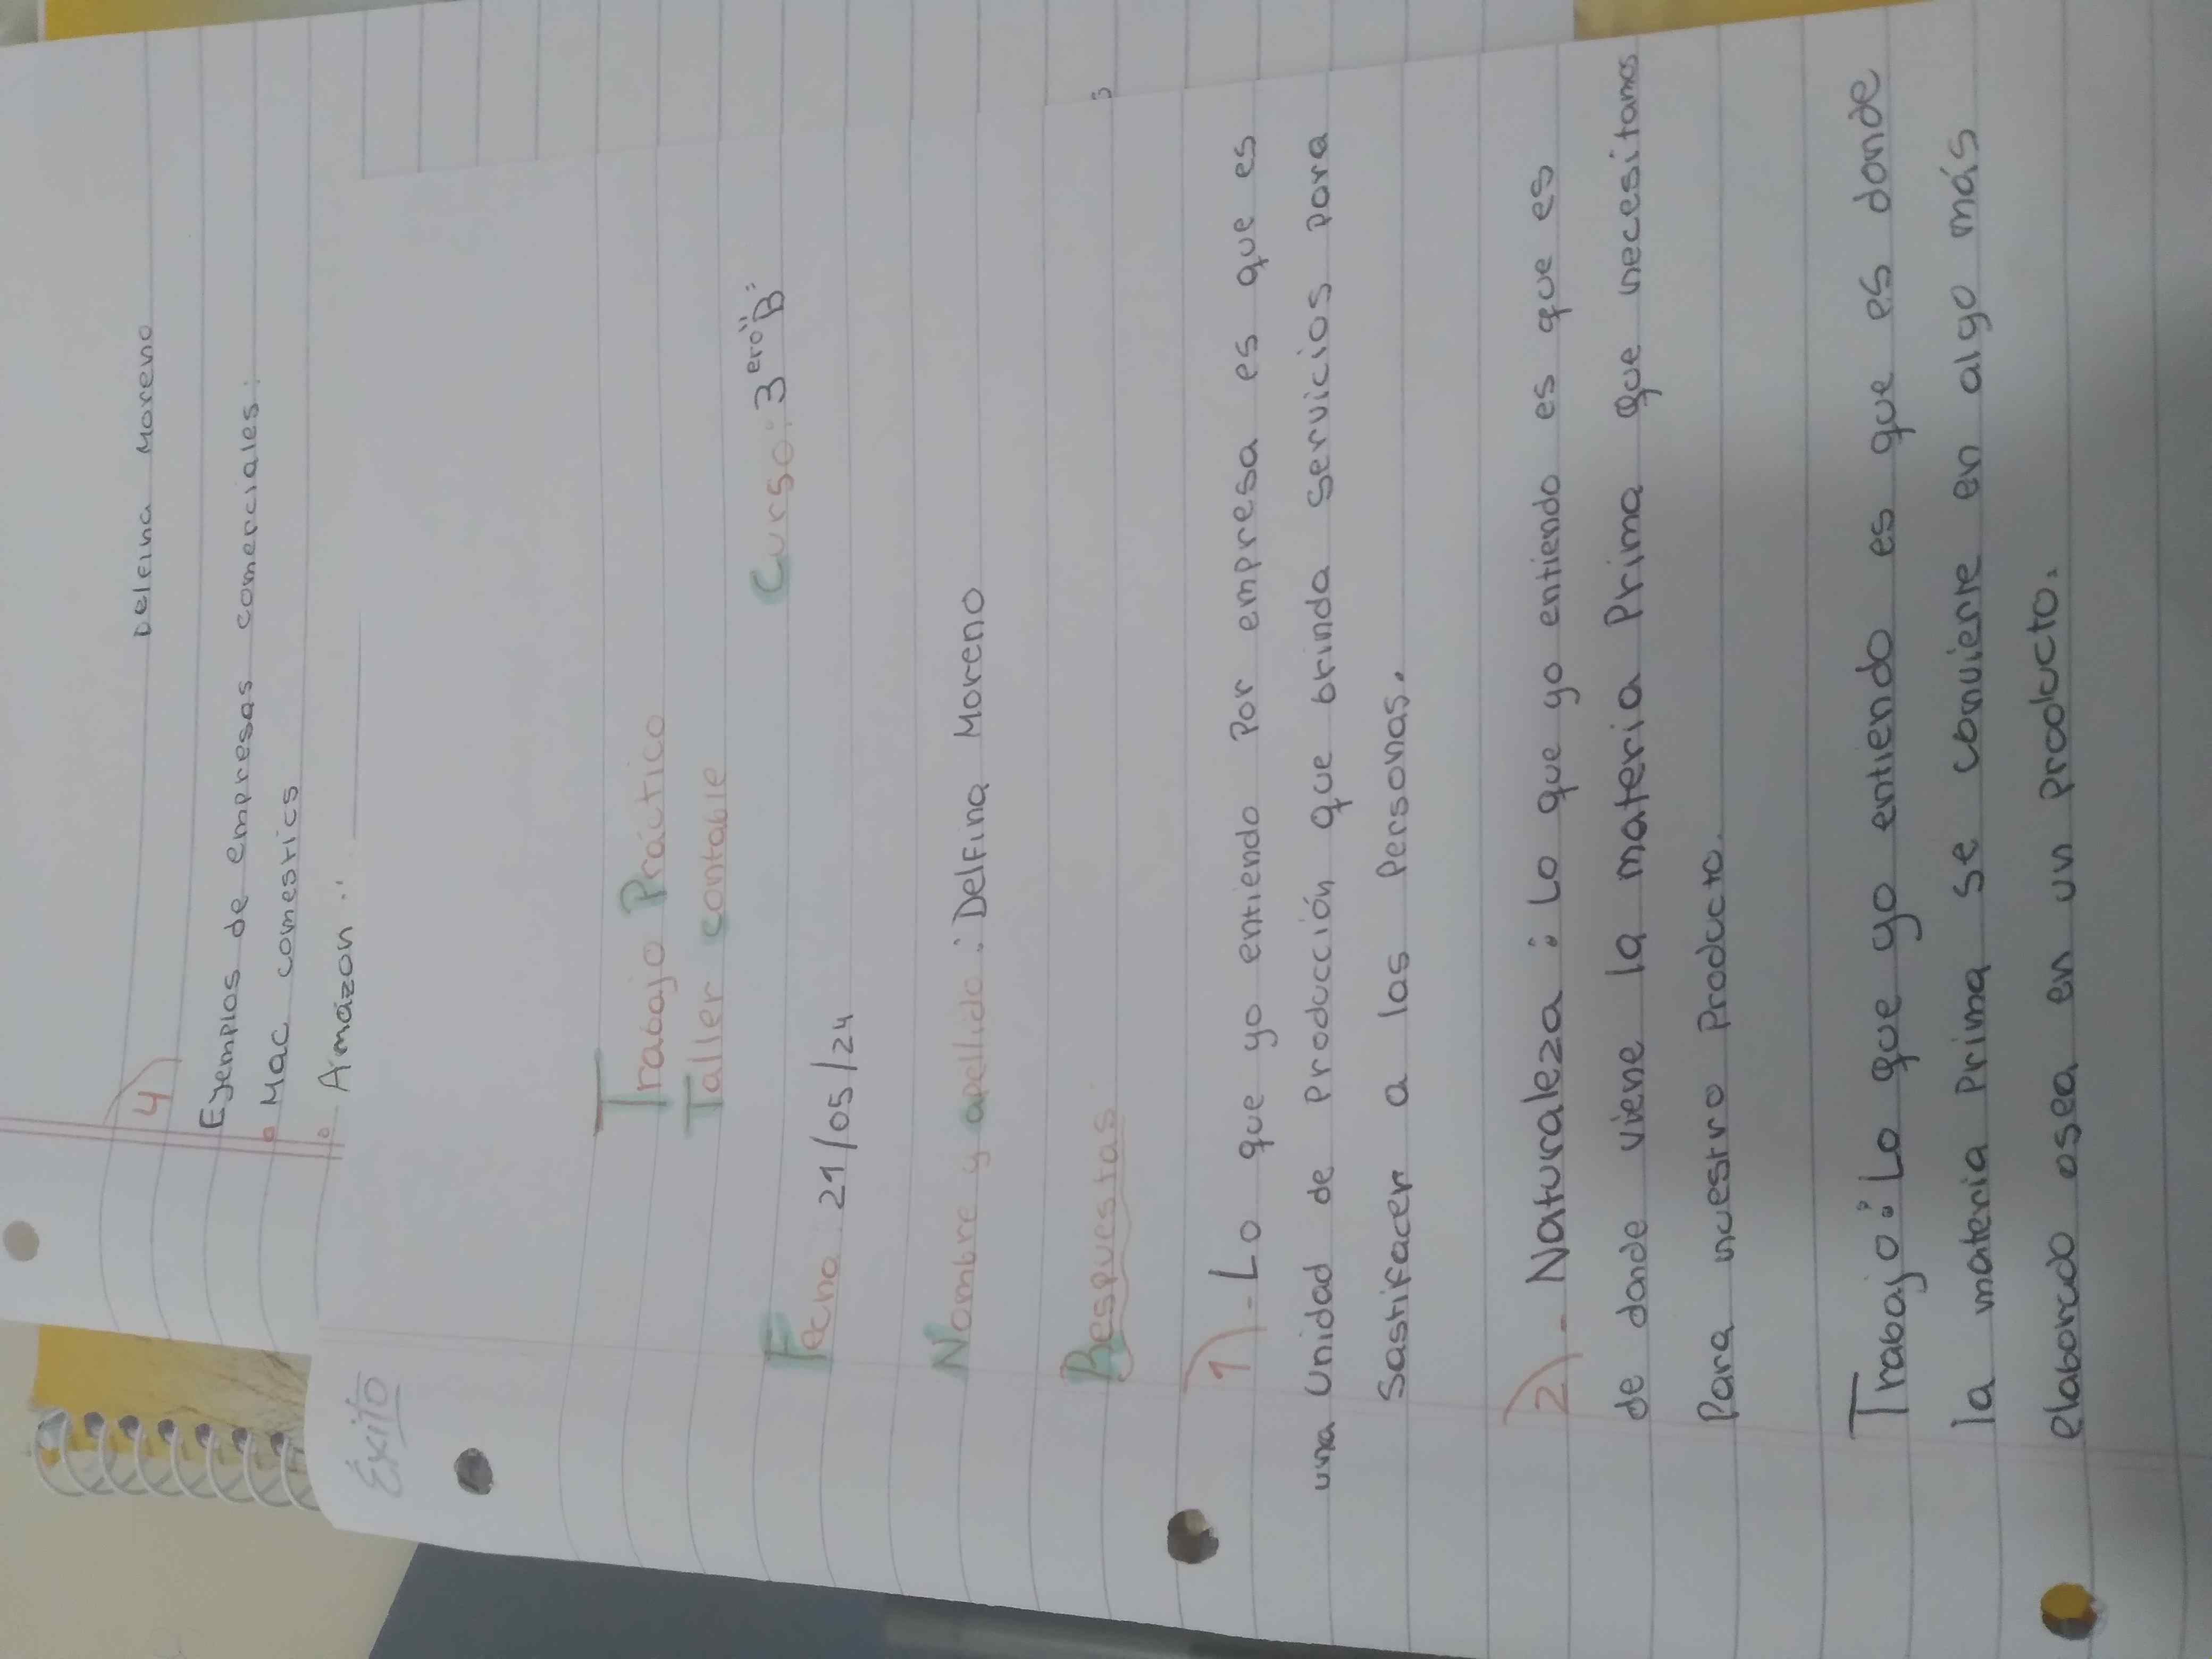 Delfina Moreno
4)
Ejemplos de empresas comerciales:
• Mac comestics
• Amázon.
Éxito
Trabajo Práctico
Taller contable
Fecha 21/05/24 Curso: 3ero"B"
Nombre y apellido: Delfina Moreno
Respuestas:
1)- Lo que yo entiendo por empresa es que es
una unidad de producción que brinda servicios para
sastifacer a las personas.
2)- Naturaleza: Lo que yo entiendo es que es
de donde viene la materia prima que necesitamos
para nuestro producto.
Trabajo: Lo que yo entiendo es que es donde
la materia prima se conviente en algo más
elaborado osea en un producto.